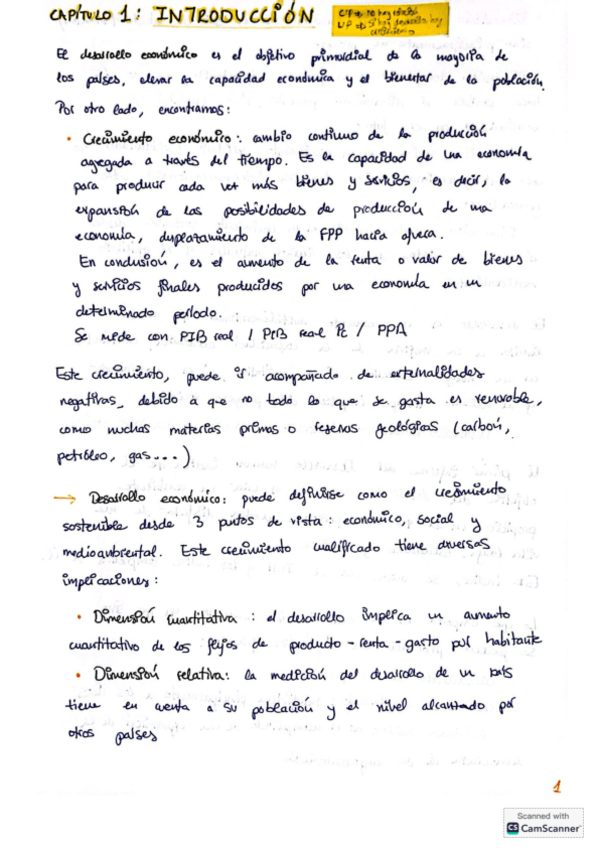 CAPÍTULO 1: INTRODUCCIÓN
El desarrollo económico es el objetivo primordial de la mayoría de
los países, elevar la capacidad económica y el bienestar de la población.
Por otro lado, encontramos:
• Crecimiento económico: cambio continuo de la producción
agregada a través del tiempo. Es la capacidad de una economía
para producir cada vez más bienes y servicios, es decir, la
expansión de las posibilidades de producción de una
economía, desplazamiento de la FPP hacia afuera.
En conclusión, es el aumento de la renta o valor de bienes
y servicios finales producidos por una economía en un
determinado período.
Se mide con PIB real / PIB real pc / PPA
Este crecimiento, puede ir acompañado de externalidades
negativas, debido a que no todo lo que se gasta es renovable,
como muchas materias primas o reservas geológicas (carbón,
petróleo, gas...)
→ Desarrollo económico: puede definirse como el crecimiento
sostenible desde 3 puntos de vista: económico, social y
medioambiental. Este crecimiento cualificado tiene diversas
implicaciones:
• Dimensión cuantitativa: el desarrollo implica un aumento
cuantitativo de los flujos de producto-renta-gasto por habitante
• Dimensión relativa: la medición del desarrollo de un país
tiene en cuenta a su población y el nivel alcanzado por
otros países
1
Scanned with
CS CamScanner